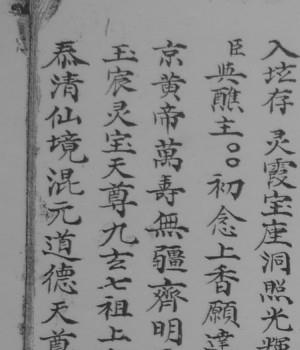 入坛存灵霞宝座洞照光輝
臣與醮主〇〇初念上香願達
京黄帝萬壽無疆齊明
玉宸灵宝天尊九玄七祖上
泰清仙境混元道德天尊